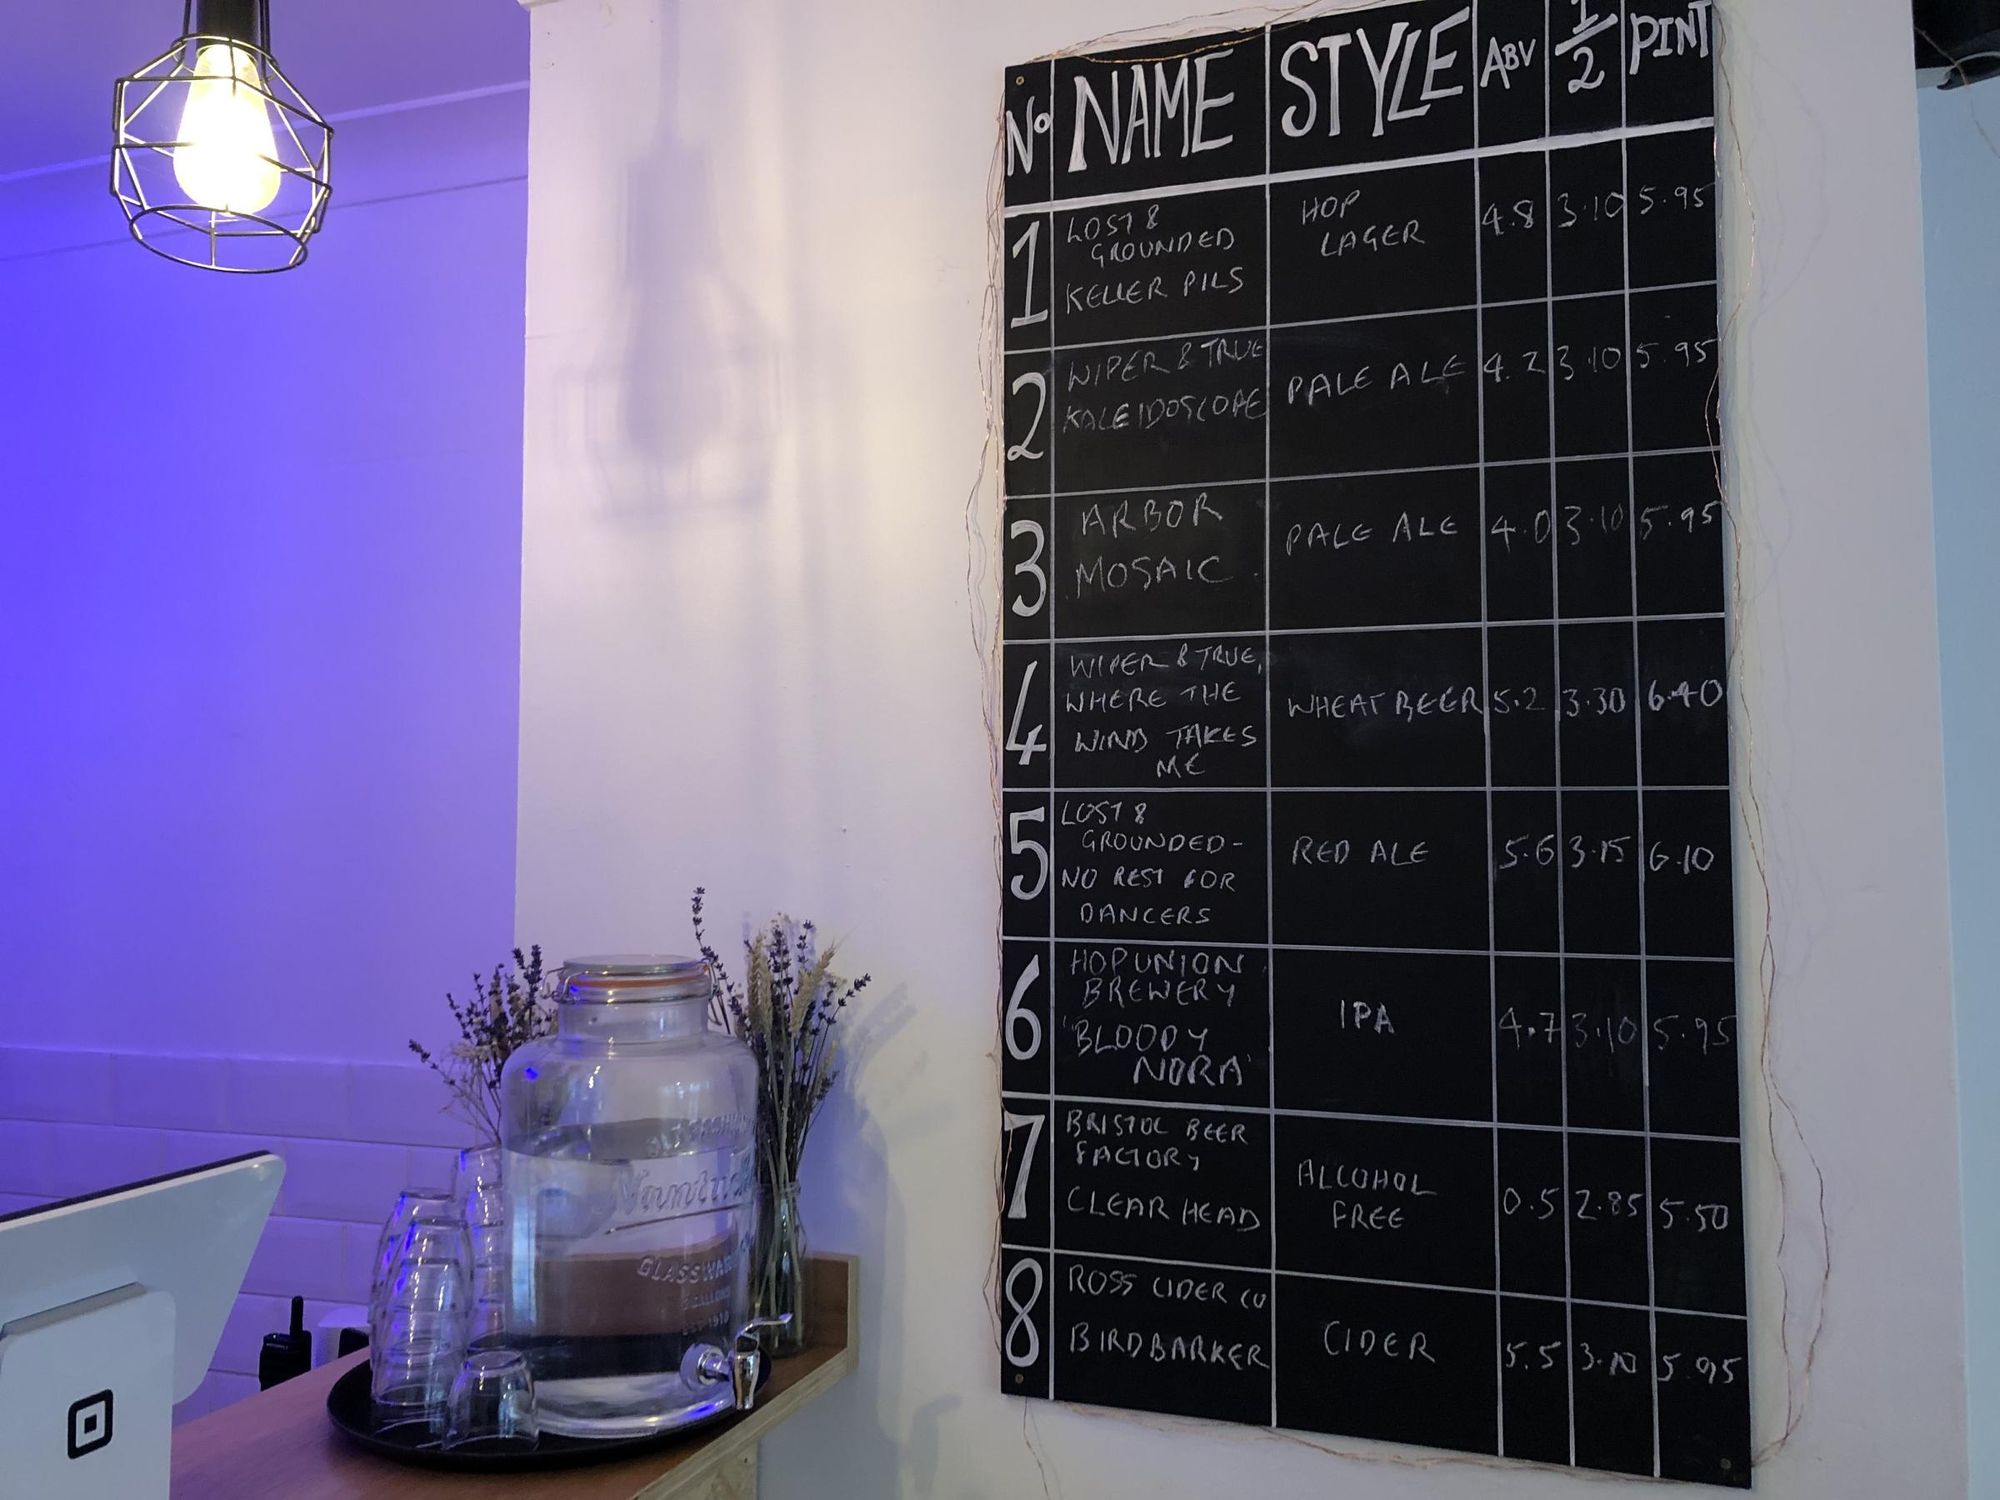 No NAME STYLE ABV 1/2 PINT
1 LOST & GROUNDED KELLER PILS HOP LAGER 4.8 3.10 5.95
2 WIPER & TRUE KALEIDOSCOPE PALE ALE 4.2 3.10 5.95
3 ARBOR MOSAIC PALE ALE 4.0 3.10 5.95
4 WIPER & TRUE, WHERE THE WIND TAKES ME WHEAT BEER 5.2 3.30 6.40
5 LOST & GROUNDED - NO REST FOR DANCERS RED ALE 5.6 3.15 6.10
6 HOP UNION BREWERY 'BLOODY NORA' IPA 4.7 3.10 5.95
7 BRISTOL BEER FACTORY CLEAR HEAD ALCOHOL FREE 0.5 2.85 5.50
8 ROSS CIDER CO BIRDBARKER CIDER 5.5 3.10 5.95
GLASSWARE